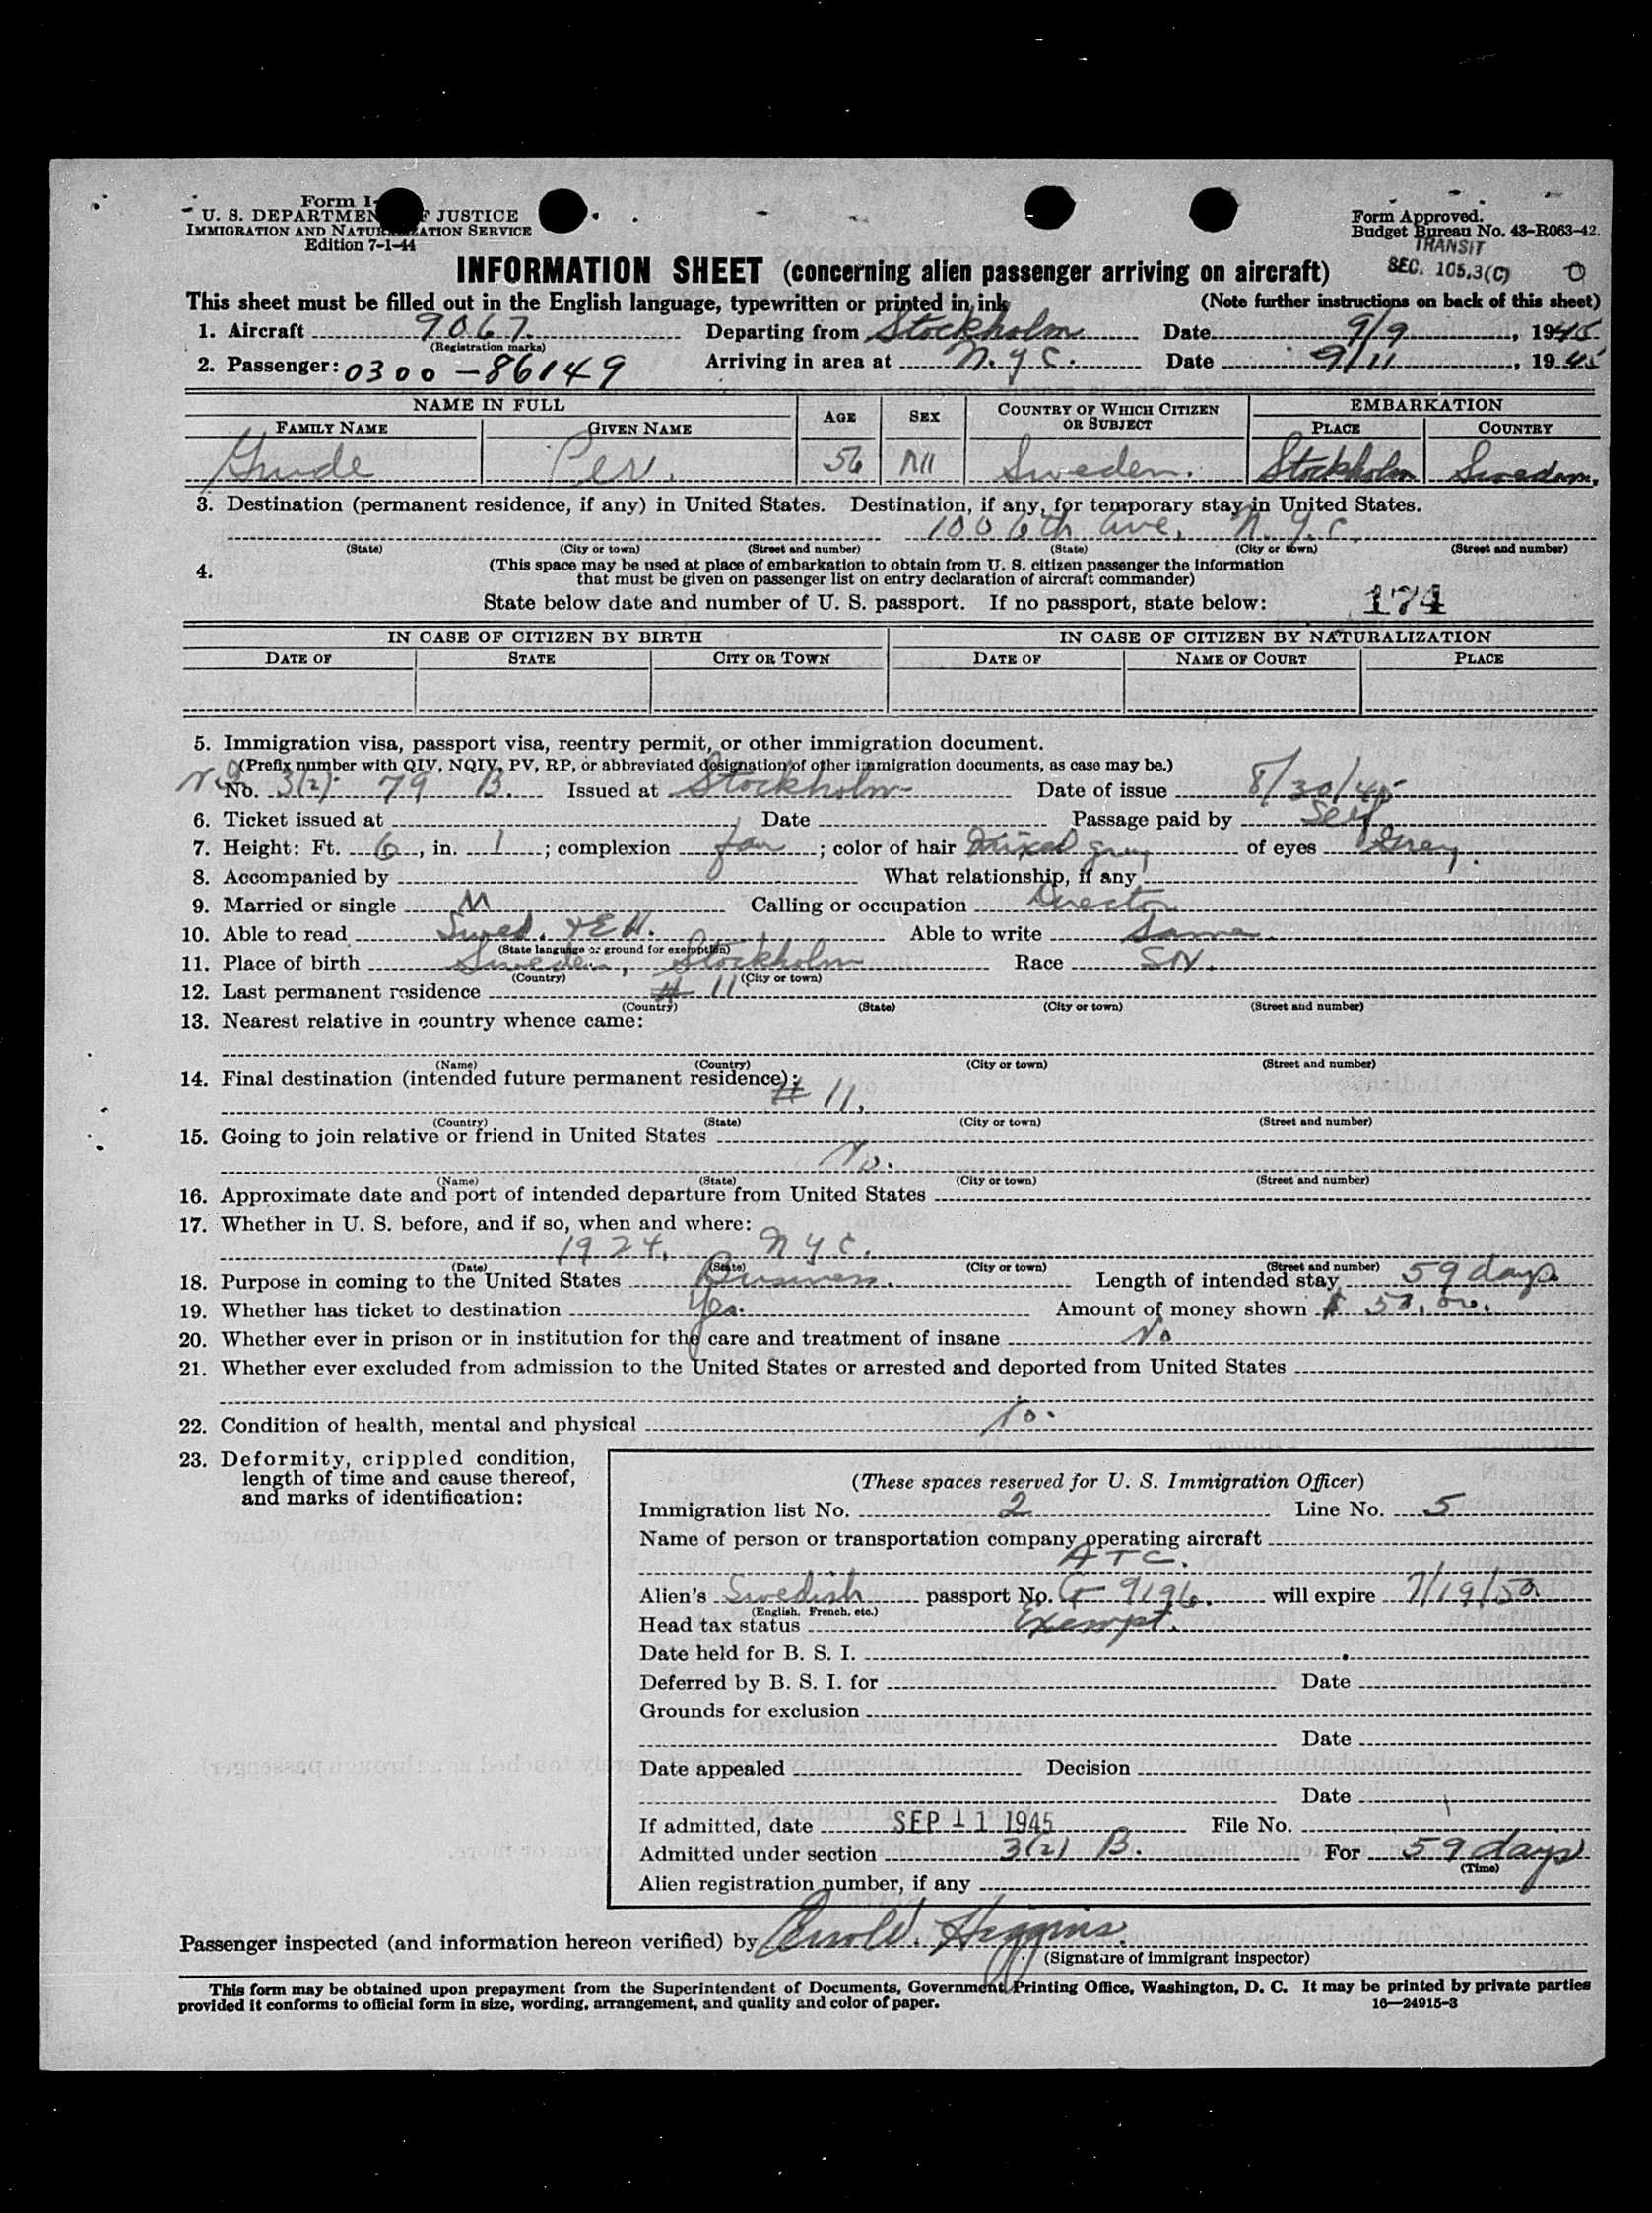 Form I-
U. S. DEPARTMENT OF JUSTICE
IMMIGRATION AND NATURALIZATION SERVICE
Edition 7-1-44
Form Approved.
Budget Bureau No. 43-R063-42.
TRANSIT
SEC. 105.3(C) 0
INFORMATION SHEET (concerning alien passenger arriving on aircraft)
This sheet must be filled out in the English language, typewritten or printed in ink (Note further instructions on back of this sheet)
1. Aircraft 9067. Departing from Stockholm Date 9/9, 1945
(Registration marks)
2. Passenger: 0300-86149 Arriving in area at N.Y.C. Date 9/11, 1945
NAME IN FULL AGE SEX COUNTRY OF WHICH CITIZEN OR SUBJECT EMBARKATION
FAMILY NAME GIVEN NAME PLACE COUNTRY
Gude Per. 56 M Sweden. Stockholm Sweden.
3. Destination (permanent residence, if any) in United States. Destination, if any, for temporary stay in United States.
100 6th Ave. N.Y.C.
(State) (City or town) (Street and number) (State) (City or town) (Street and number)
4. (This space may be used at place of embarkation to obtain from U. S. citizen passenger the information
that must be given on passenger list on entry declaration of aircraft commander)
State below date and number of U. S. passport. If no passport, state below: 174
IN CASE OF CITIZEN BY BIRTH IN CASE OF CITIZEN BY NATURALIZATION
DATE OF STATE CITY OR TOWN DATE OF NAME OF COURT PLACE
5. Immigration visa, passport visa, reentry permit, or other immigration document.
(Prefix number with QIV, NQIV, PV, RP, or abbreviated designation of other immigration documents, as case may be.)
No. 3(2). 79 B. Issued at Stockholm Date of issue 8/30/45
6. Ticket issued at Date Passage paid by Self
7. Height: Ft. 6, in. 1; complexion fair; color of hair Mixed gray of eyes Grey.
8. Accompanied by What relationship, if any
9. Married or single M Calling or occupation Director
10. Able to read Swed. & EN. Able to write Same.
(State language or ground for exemption)
11. Place of birth Sweden, Stockholm Race
(Country) (City or town)
12. Last permanent residence # 11
(Country) (State) (City or town) (Street and number)
13. Nearest relative in country whence came:
(Name) (Country) (City or town) (Street and number)
14. Final destination (intended future permanent residence):
# 11.
(Country) (State) (City or town) (Street and number)
15. Going to join relative or friend in United States
No.
(Name) (State) (City or town) (Street and number)
16. Approximate date and port of intended departure from United States
17. Whether in U. S. before, and if so, when and where:
1924. N Y C.
(Date) (State) (City or town) (Street and number)
18. Purpose in coming to the United States Business. Length of intended stay 59 days
19. Whether has ticket to destination Yes. Amount of money shown $
20. Whether ever in prison or in institution for the care and treatment of insane No
21. Whether ever excluded from admission to the United States or arrested and deported from United States
No.
22. Condition of health, mental and physical
23. Deformity, crippled condition,
length of time and cause thereof,
and marks of identification:
(These spaces reserved for U. S. Immigration Officer)
Immigration list No. 2 Line No. 5
Name of person or transportation company operating aircraft
ATC.
Alien's Swedish passport No. G-9196. will expire 7/19/50.
(English, French, etc.)
Head tax status Exempt.
Date held for B. S. I.
Deferred by B. S. I. for Date
Grounds for exclusion
Date
Date appealed Decision
Date
If admitted, date SEP 11 1945 File No.
Admitted under section 3(2) B. For 59 days
(Time)
Alien registration number, if any
Passenger inspected (and information hereon verified) by Higgins.
(Signature of immigrant inspector)
This form may be obtained upon prepayment from the Superintendent of Documents, Government Printing Office, Washington, D. C. It may be printed by private parties
provided it conforms to official form in size, wording, arrangement, and quality and color of paper. 16—24915-3